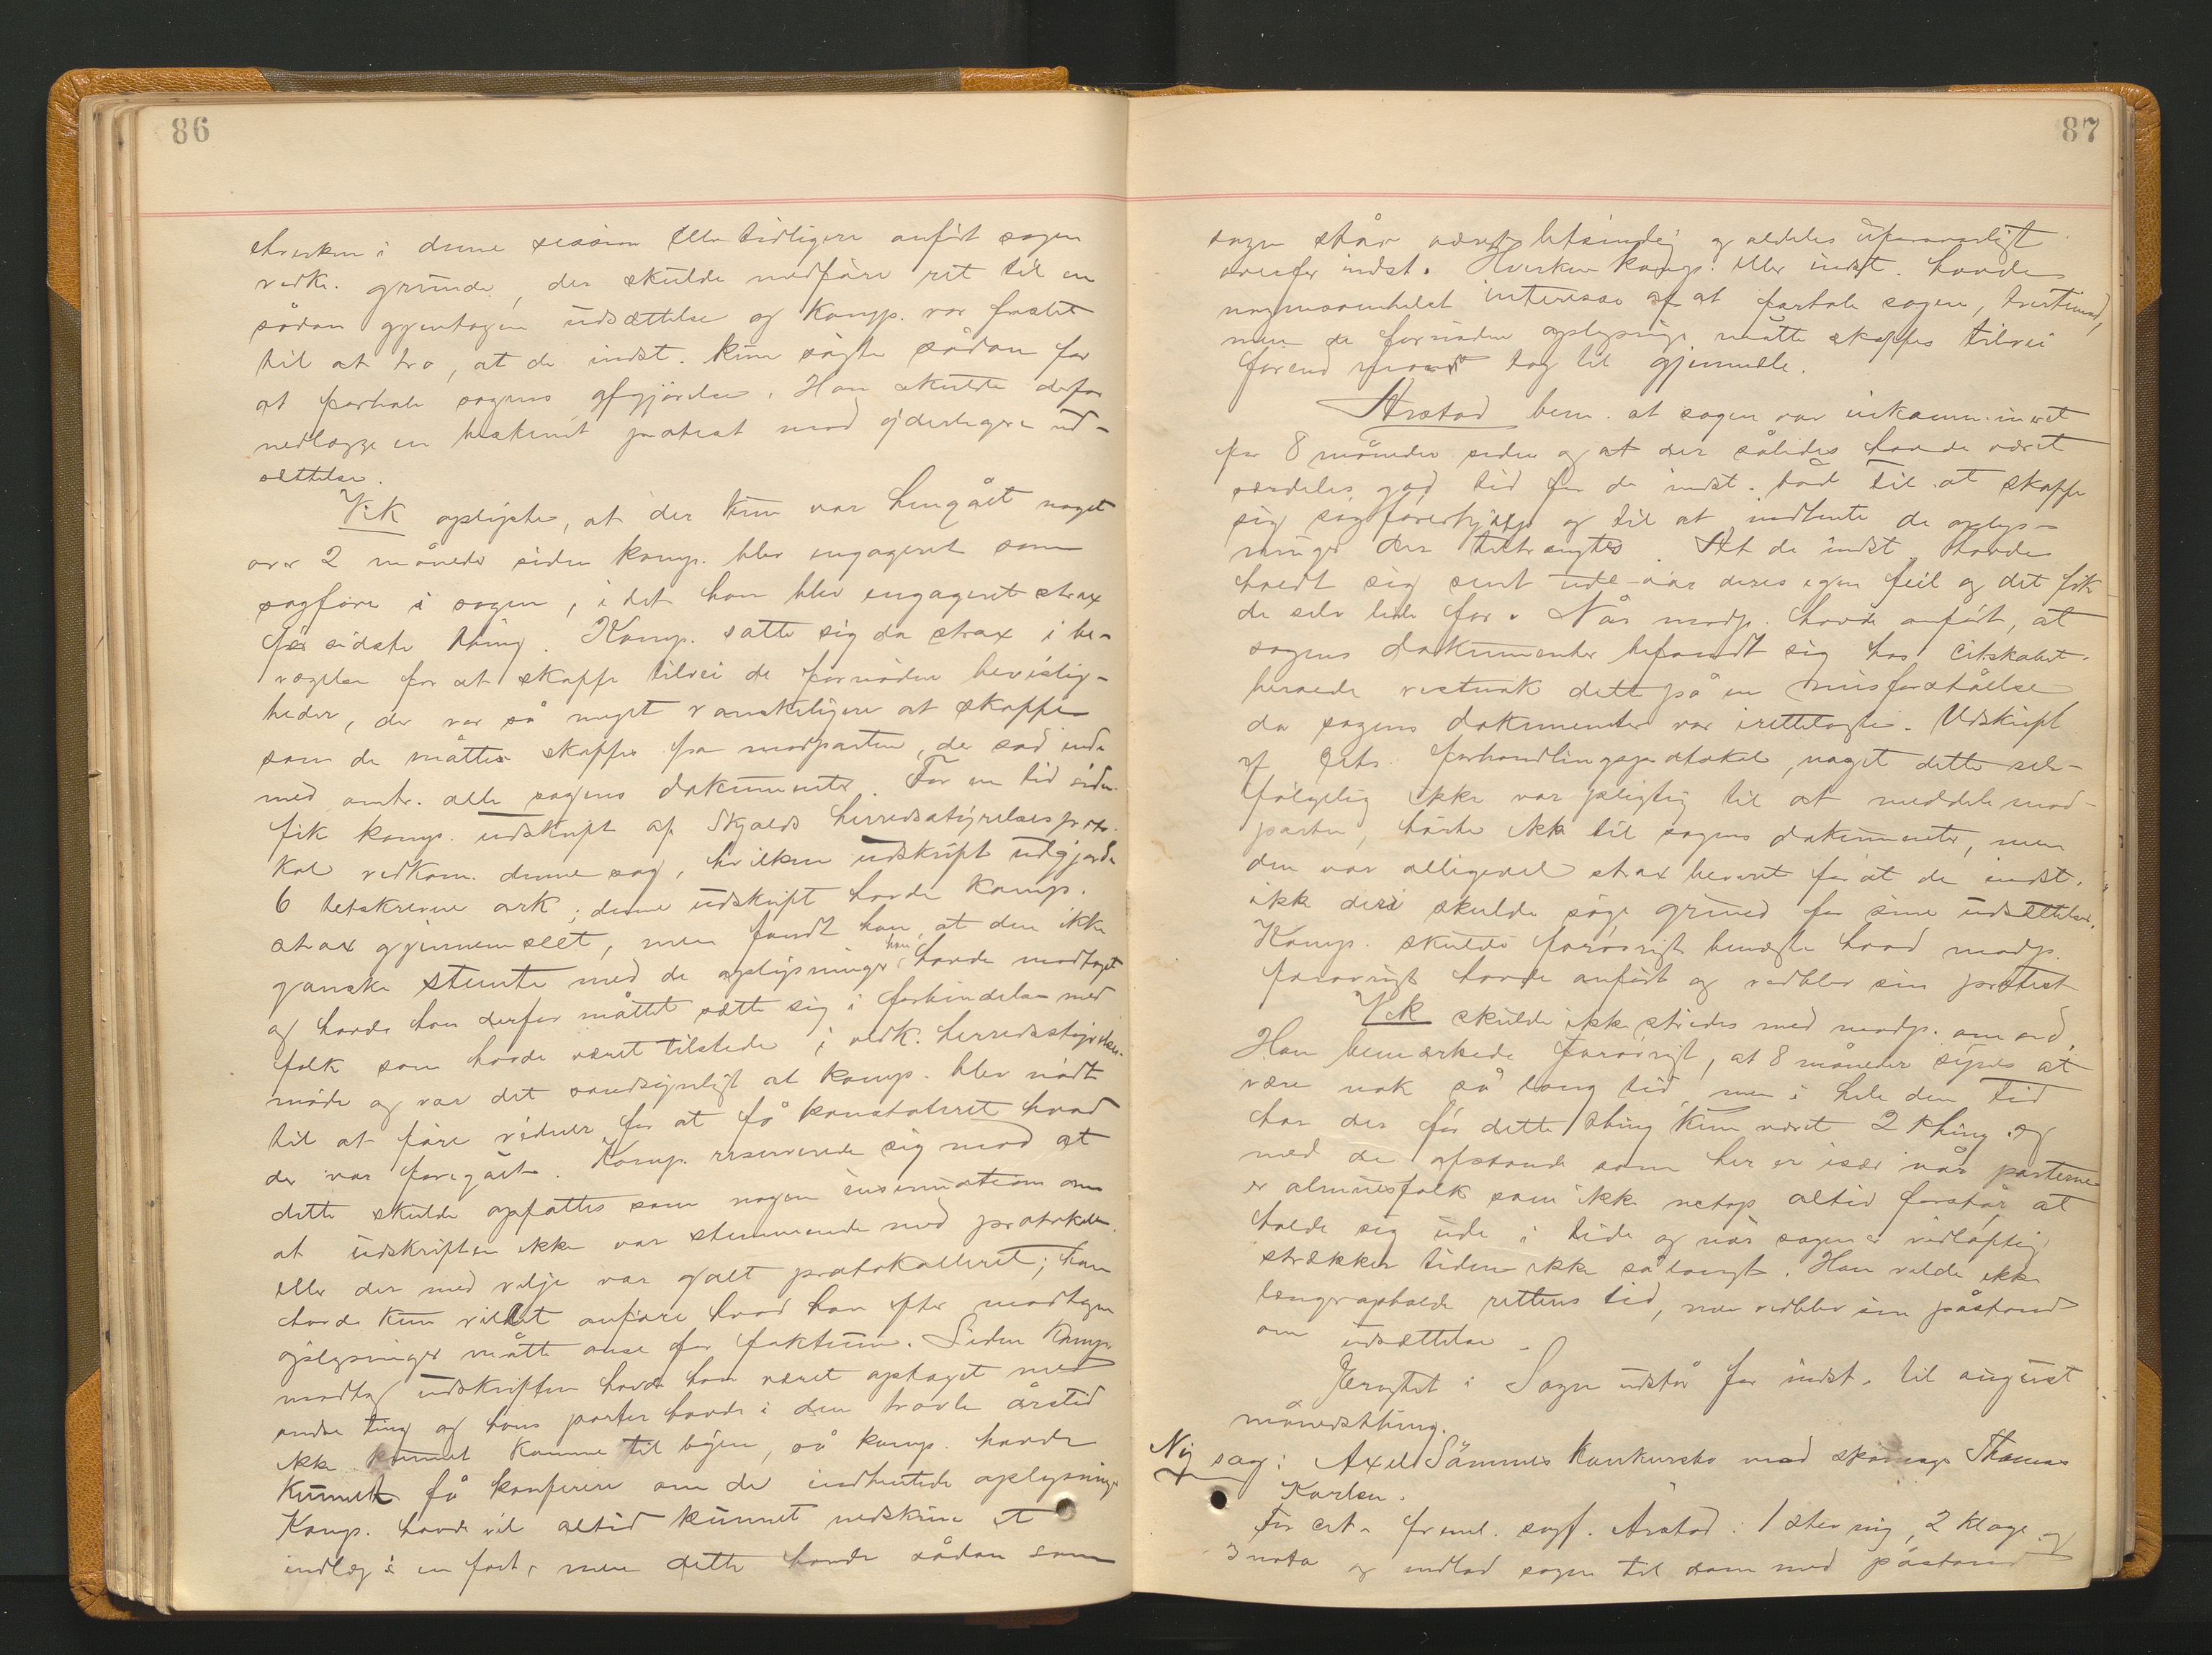 86
hverken i denne session eller tidligere anført sagen
vedk. grunde, der skulde medføre ret til en
sådan gjentagen udsættelse og komp. var fristet
til at tro, at de indst. kun søgte sådan for
at forhale sagens afgjørelse. Han skulde derfor
nedlægge en bestemt protest mod yderligere ud-
sættelse.
Vik oplyste, at der kun var hengået noget
over 2 måneder siden komp. blev engageret som
sagfører i sagen, i det han blev engageret strax
før sidste thing. Komp. satte sig da strax i be-
vægelse for at skaffe tilvei de fornødne bevislig-
heder, der var så meget vanskeligere at skaffe
som de måtte skaffes fra modparten, der sad inde
med omtr. alle sagens dokumenter. For en tid siden
fik komp. udskrift af Skjolds herredsstyrelses proto-
kol vedkom. denne sag, hvilken udskrift udgjorde
6 tetskrevne ark; denne udskrift havde komp.
strax gjennemseet, men fandt han, at den ikke
ganske stemte med de oplysninger han havde modtaget
og havde han derfor måttet sætte sig i forbindelse med
folk som havde været tilstede i vedk. herredsstyrelses-
møde og var det sandsynligt at komp. blev nødt
til at føre vidner for at få konstateret hvad
der var foregået. Komp. reserverede sig mod at
dette skulde opfattes som nogen insinuation om
at udskriften ikke var stemmende med protokollen
eller der med vilje var galt protokolleret; han
havde kun villet anføre hvad han efter modtagne
oplysninger måtte anse for faktum. Siden komp.
modtog udskriften havde han været optaget med
andre ting og hans parter havde i den travle årstid
ikke kunnet komme til byen, så komp. havde
kunnet få konferere om de indhentede oplysninger
Komp. havde vel altid kunnet nedskrive et
indlæg i en fart, men dette havde sådan som
87
sagen står været letsindig og aldeles uforsvarligt
overfor indst. Hverken komp. eller indst. havde
nogensomhelst interesse af at forhale sagen, tvertimod,
men de fornødne oplysninger måtte skaffes tilvei
førend man tog til gjenmæle.
Årstad bem. at sagen var inkammineret
for 8 måneder siden og at der således havde været
særdeles god tid for de indst. både til at skaffe
sig sagførerhjælp og til at indhente de oplys-
ninger der tiltrængtes. At de indst. havde
holdt sig sent ude var deres egen feil og det fik
de selv lide for. Når modp. havde anført, at
sagens dokumenter befandt sig hos citskabet
beroede vistnok dette på en misforståelse
da sagens dokumenter var irettelagte. Udskrift
af Cits. forhandlingsprotokol, noget dette selv-
følgelig ikke var pligtig til at meddele mod-
parten, hørte ikke til sagens dokumenter, men
den var alligevel strax leveret for at de indst.
ikke deri skulde søge grund for sine udsættelser.
Komp. skulde forøvrigt benægte hvad modp.
forøvrigt havde anført og vedblev sin protest
Vik skulde ikke strides med modp. om ord.
Han bemærkede forøvrigt, at 8 måneder synes at
være nok så lang tid, men i hele den tid
har der før dette thing kun været 2 thing og
med de afstande som her er især når parterne
er almuesfolk som ikke netop altid forstår at
holde sig ude i tide og når sagen er vidløftig
strækker tiden ikke så langt. Han vilde ikke
længer opholde rettens tid, men vedblev sin påstand
om udsættelse.
Eragtet: Sagen udstår for indst. til august
månedsthing.
Ny sag: Axel Sømmes konkursbo mod skomager Thomas
Karlsen.
For cit. freml. sagf. Årstad: 1 stevning, 2 klage og
3 nota og indlod sagen til dom med påstand